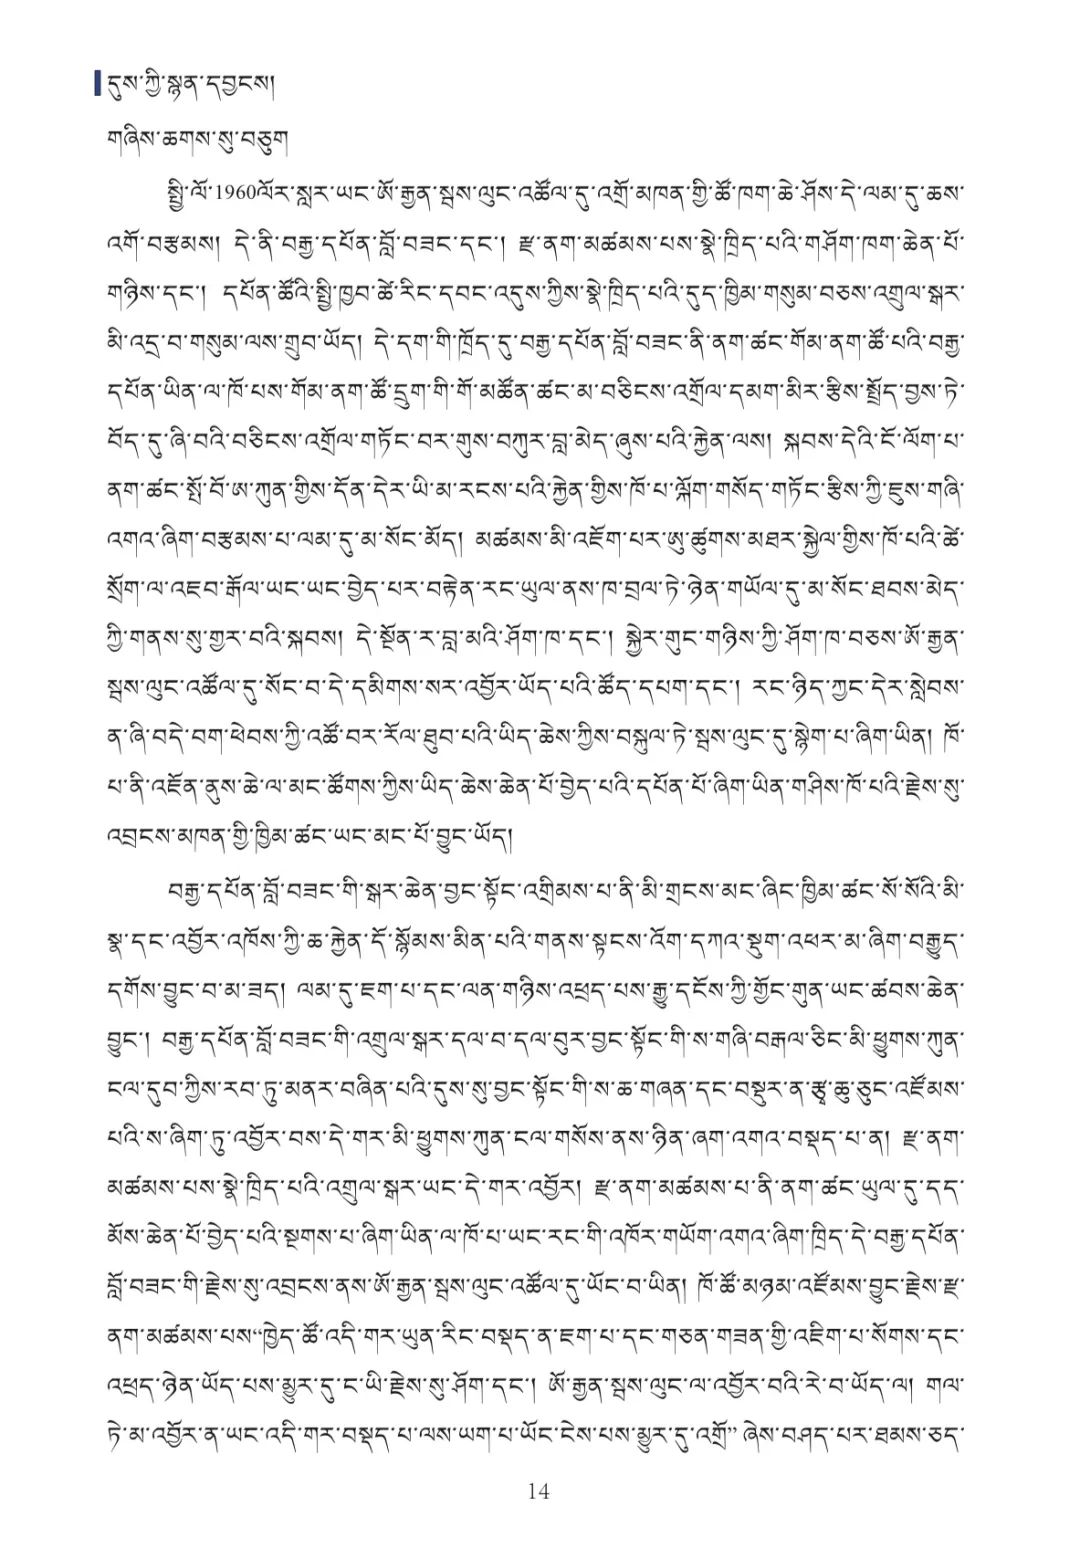 དུས་ཀྱི་སྙན་དབྱངས།
གཞིས་ཆགས་སུ་བཅུག
སྤྱི་ལོ་1960ལོར་སླར་ཡང་ཨོ་རྒྱན་སྦས་ལུང་འཚོལ་དུ་འགྲོ་མཁན་གྱི་ཚོ་ཁག་ཆེ་ཤོས་དེ་ལམ་དུ་ཆས་
འགོ་བརྩམས། དེ་ནི་བརྒྱ་དཔོན་བློ་བཟང་དང་། རྫ་ནག་མཚམས་པས་སྣེ་ཁྲིད་པའི་གཤོག་ཁག་ཆེན་པོ་
གཉིས་དང་། དཔོན་ཚོའི་སྤྱི་ཁྱབ་ཚེ་རིང་དབང་འདུས་ཀྱིས་སྣེ་ཁྲིད་པའི་དུད་ཁྱིམ་གསུམ་བཅས་འགྲུལ་སྒར་
མི་འདྲ་བ་གསུམ་ལས་གྲུབ་ཡོད། དེ་དག་གི་ཁྲོད་དུ་བརྒྱ་དཔོན་བློ་བཟང་ནི་ནག་ཚང་གོམ་ནག་ཚོ་པའི་བརྒྱ་
དཔོན་ཡིན་ལ་ཁོ་པས་གོམ་ནག་ཚོ་དྲུག་གི་གོ་མཚོན་ཚང་མ་བཅིངས་འགྲོལ་དམག་མིར་རྩིས་སྤྲོད་བྱས་ཏེ་
བོད་དུ་ཞི་བའི་བཅིངས་འགྲོལ་གཏོང་བར་གུས་བཀུར་བླ་མེད་ཞུས་པའི་རྐྱེན་ལས། སྐབས་དེའི་ངོ་ལོག་པ་
ནག་ཚང་སྤོ་བོ་ཨ་ཀུན་གྱིས་དོན་དེར་ཡི་མ་རངས་པའི་རྐྱེན་གྱིས་ཁོ་པ་ལྐོག་གསོད་གཏོང་རྩིས་ཀྱི་ཇུས་གཞི་
འགའ་ཞིག་བརྩམས་པ་ལམ་དུ་མ་སོང་མོད། མཚམས་མི་འཇོག་པར་ཨུ་ཚུགས་མཐར་སྐྱེལ་གྱིས་ཁོ་པའི་ཚེ་
སྲོག་ལ་འཇབ་རྒོལ་ཡང་ཡང་བྱེད་པར་བརྟེན་རང་ཡུལ་ནས་ཁ་བྲལ་ཏེ་ཉེན་གཡོལ་དུ་མ་སོང་ཐབས་མེད་
ཀྱི་གནས་སུ་གྱུར་བའི་སྐབས། དེ་སྔོན་ར་བླ་མའི་ཤོག་ཁ་དང་། སྐྱེར་གུང་གཉིས་ཀྱི་ཤོག་ཁ་བཅས་ཨོ་རྒྱན་
སྦས་ལུང་འཚོལ་དུ་སོང་བ་དེ་དམིགས་སར་འབྱོར་ཡོད་པའི་ཚོད་དཔག་དང་། རང་ཉིད་ཀྱང་དེར་སླེབས་
ན་ཞི་བདེ་བག་ཕེབས་ཀྱི་འཚོ་བར་རོལ་ཐུབ་པའི་ཡིད་ཆེས་ཀྱིས་བསྐུལ་ཏེ་སྦས་ལུང་དུ་སྙེག་པ་ཞིག་ཡིན། ཁོ་
པ་ནི་འཇོན་ནུས་ཆེ་ལ་མང་ཚོགས་ཀྱིས་ཡིད་ཆེས་ཆེན་པོ་བྱེད་པའི་དཔོན་པོ་ཞིག་ཡིན་གཤིས་ཁོ་པའི་རྗེས་སུ་
འབྲངས་མཁན་གྱི་ཁྱིམ་ཚང་ཡང་མང་པོ་བྱུང་ཡོད།
བརྒྱ་དཔོན་བློ་བཟང་གི་སྒར་ཆེན་བྱང་སྟོང་འགྲིམས་པ་ནི་མི་གྲངས་མང་ཞིང་ཁྱིམ་ཚང་སོ་སོའི་མི་
སྣ་དང་འབྱོར་འཁོས་ཀྱི་ཆ་རྐྱེན་དོ་སྙོམས་མིན་པའི་གནས་སྟངས་འོག་དཀའ་སྡུག་འཕར་མ་ཞིག་བརྒྱུད་
དགོས་བྱུང་བ་མ་ཟད། ལམ་དུ་ཇག་པ་དང་ལན་གཉིས་འཕྲད་པས་རྒྱུ་དངོས་ཀྱི་གྱོང་གུན་ཡང་ཚབས་ཆེན་
བྱུང་། བརྒྱ་དཔོན་བློ་བཟང་གི་འགྲུལ་སྒར་དལ་བ་དལ་བུར་བྱང་སྟོང་གི་ས་གཞི་བརྒལ་ཅིང་མི་ཕྱུགས་ཀུན་
ངལ་དུབ་ཀྱིས་རབ་ཏུ་མནར་བཞིན་པའི་དུས་སུ་བྱང་སྟོང་གི་ས་ཆ་གཞན་དང་བསྡུར་ན་རྩྭ་ཆུ་ཅུང་འཛོམས་
པའི་ས་ཞིག་ཏུ་འབྱོར་བས་དེ་གར་མི་ཕྱུགས་ཀུན་ངལ་གསོས་ནས་ཉིན་ཞག་འགའ་བསྡད་པ་ན། རྫ་ནག་
མཚམས་པས་སྣེ་ཁྲིད་པའི་འགྲུལ་སྒར་ཡང་དེ་གར་འབྱོར། རྫ་ནག་མཚམས་པ་ནི་ནག་ཚང་ཡུལ་དུ་དད་
མོས་ཆེན་པོ་བྱེད་པའི་སྔགས་པ་ཞིག་ཡིན་ལ་ཁོ་པ་ཡང་རང་གི་འཁོར་གཡོག་འགའ་ཞིག་ཁྲིད་དེ་བརྒྱ་དཔོན་
བློ་བཟང་གི་རྗེས་སུ་འབྲངས་ནས་ཨོ་རྒྱན་སྦས་ལུང་འཚོལ་དུ་ཡོང་བ་ཡིན། ཁོ་ཚོ་མཉམ་འཛོམས་བྱུང་རྗེས་རྫ་
ནག་མཚམས་པས“ཁྱེད་ཚོ་འདི་གར་ཡུན་རིང་བསྡད་ན་ཇག་པ་དང་གཅན་གཟན་གྱི་འཇིག་པ་སོགས་དང་
འཕྲད་ཉེན་ཡོད་པས་མྱུར་དུ་ང་ཡི་རྗེས་སུ་ཤོག་དང་། ཨོ་རྒྱན་སྦས་ལུང་ལ་འབྱོར་བའི་རེ་བ་ཡོད་ལ། གལ་
ཏེ་མ་འབྱོར་ན་ཡང་འདི་གར་བསྡད་པ་ལས་ཡག་པ་ཡོང་ངེས་པས་མྱུར་དུ་འགྲོ” ཞེས་བཤད་པར་ཐམས་ཅད་
14